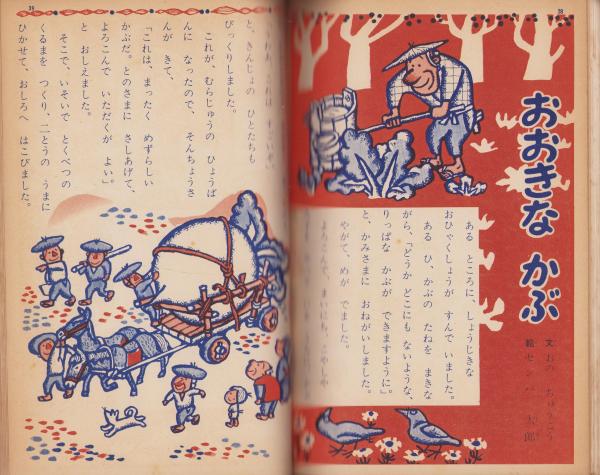 38
おおきな かぶ
文 おの ちゅうこう
絵 センバ 太郎
ある ところに、しょうじきな
おひゃくしょうが すんで いました。
ある ひ、かぶの たねを まきな
がら、「どうか どこにも ないような、
りっぱな かぶが できますように」
と、かみさまに おねがいしました。
やがて、めが でました。
よろこんで、まいにち、
39
と、きんじょの ひとたちも
びっくりしました。
これが、むらじゅうの ひょうば
んに なったので、そんちょうさ
んが きて、
「これは、まったく めずらしい
かぶだ。とのさまに さしあげて、
よろこんで いただくが よい」
と おしえました。
そこで、いそいで とくべつの
くるまを つくり、二とうの うまに
ひかせて、おしろへ はこびました。